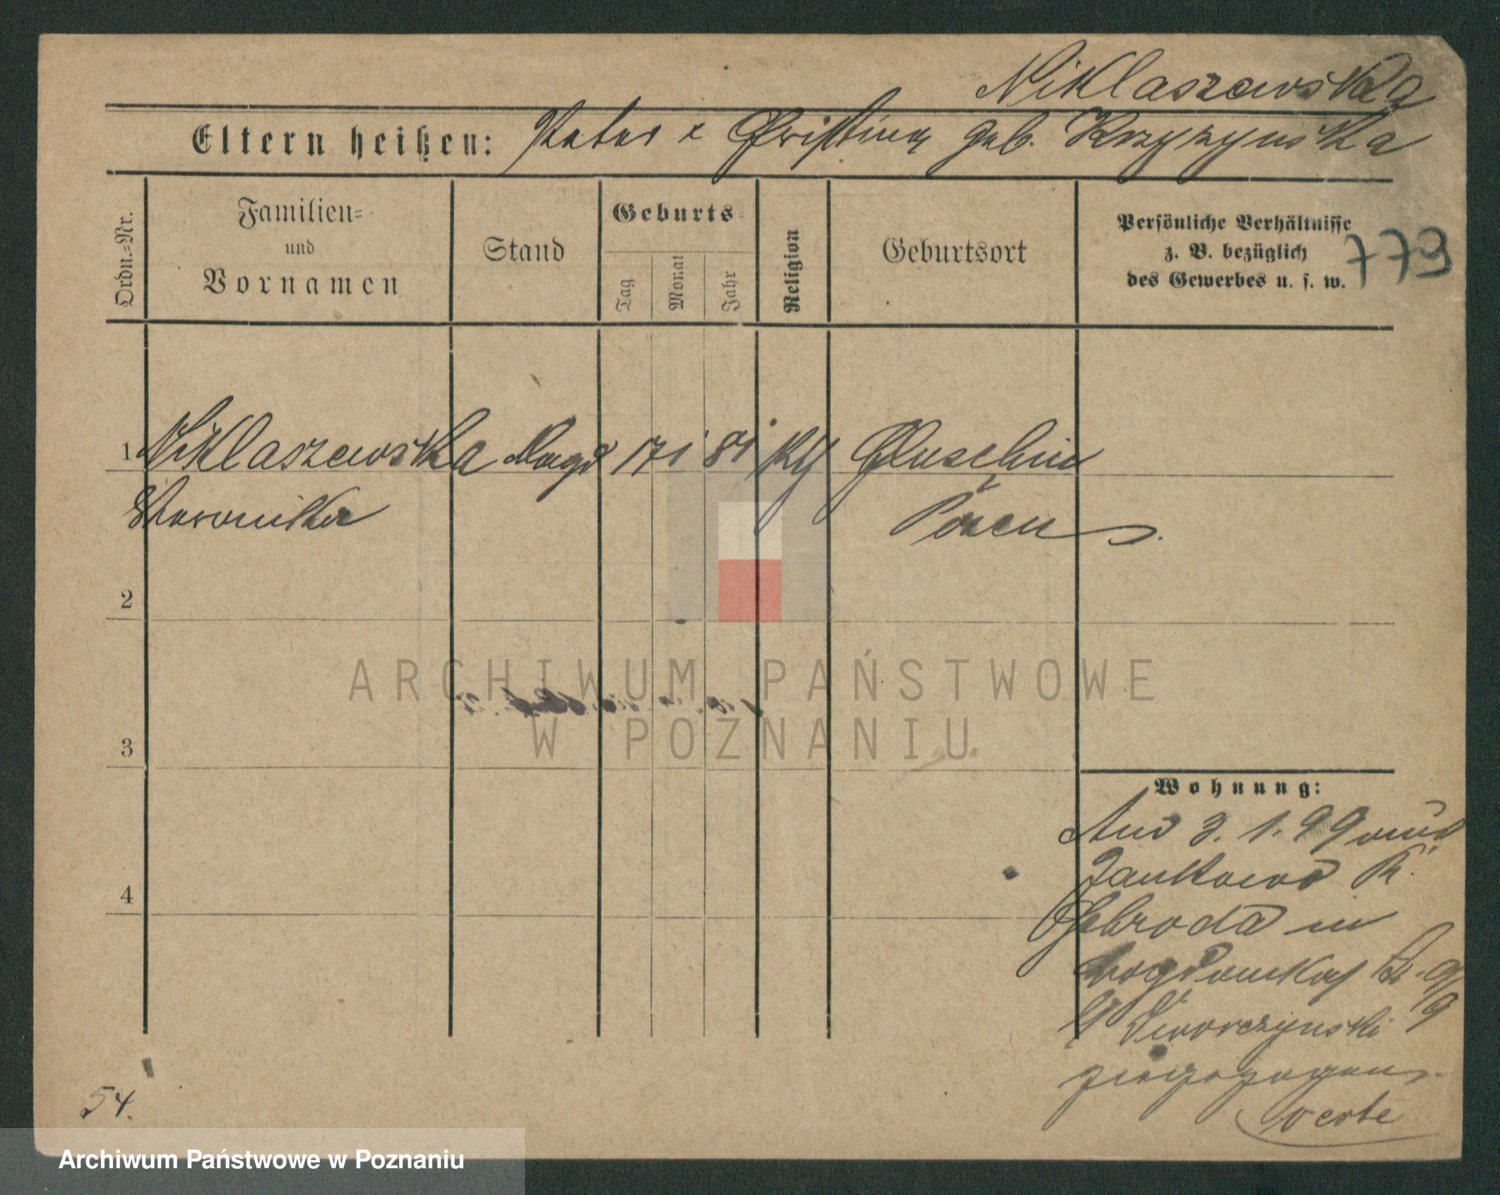 Niklaszewska
Eltern heißen: Peter & Christine geb. Krzyzynska
Ordn.-Nr.
Familien-
und
Vornamen
Stand
Geburts-
Tag
Monat
Jahr
Religion
Geburtsort
Persönliche Verhältnisse
z. B. bezüglich
des Gewerbes u. s. w.
773
1 Niklaszewska Magd 17 1 81 Gluschin
Veronika Posen
2
3
4
Wohnung:
3. 1. 99
Jankowo K.
Schroda in
9/9
Dworczynski
zugezogen
54.
ARCHIWUM PAŃSTWOWE
W POZNANIU
Archiwum Państwowe w Poznaniu